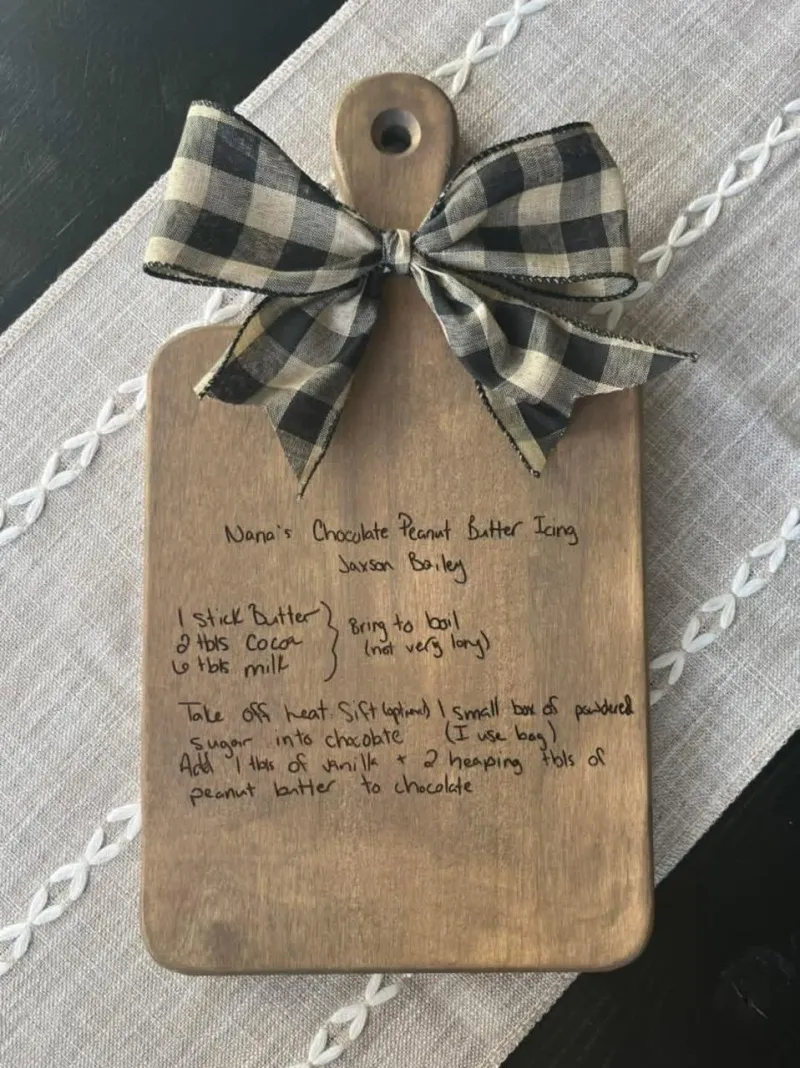 Nana's Chocolate Peanut Butter Icing
Jaxson Bailey
1 stick Butter } Bring to boil
2 tbls Cocoa (not very long)
6 tbls milk
Take off heat. Sift (optional) 1 small box of powdered
sugar into chocolate (I use bag)
Add 1 tbls of vanilla + 2 heaping tbls of
peanut butter to chocolate